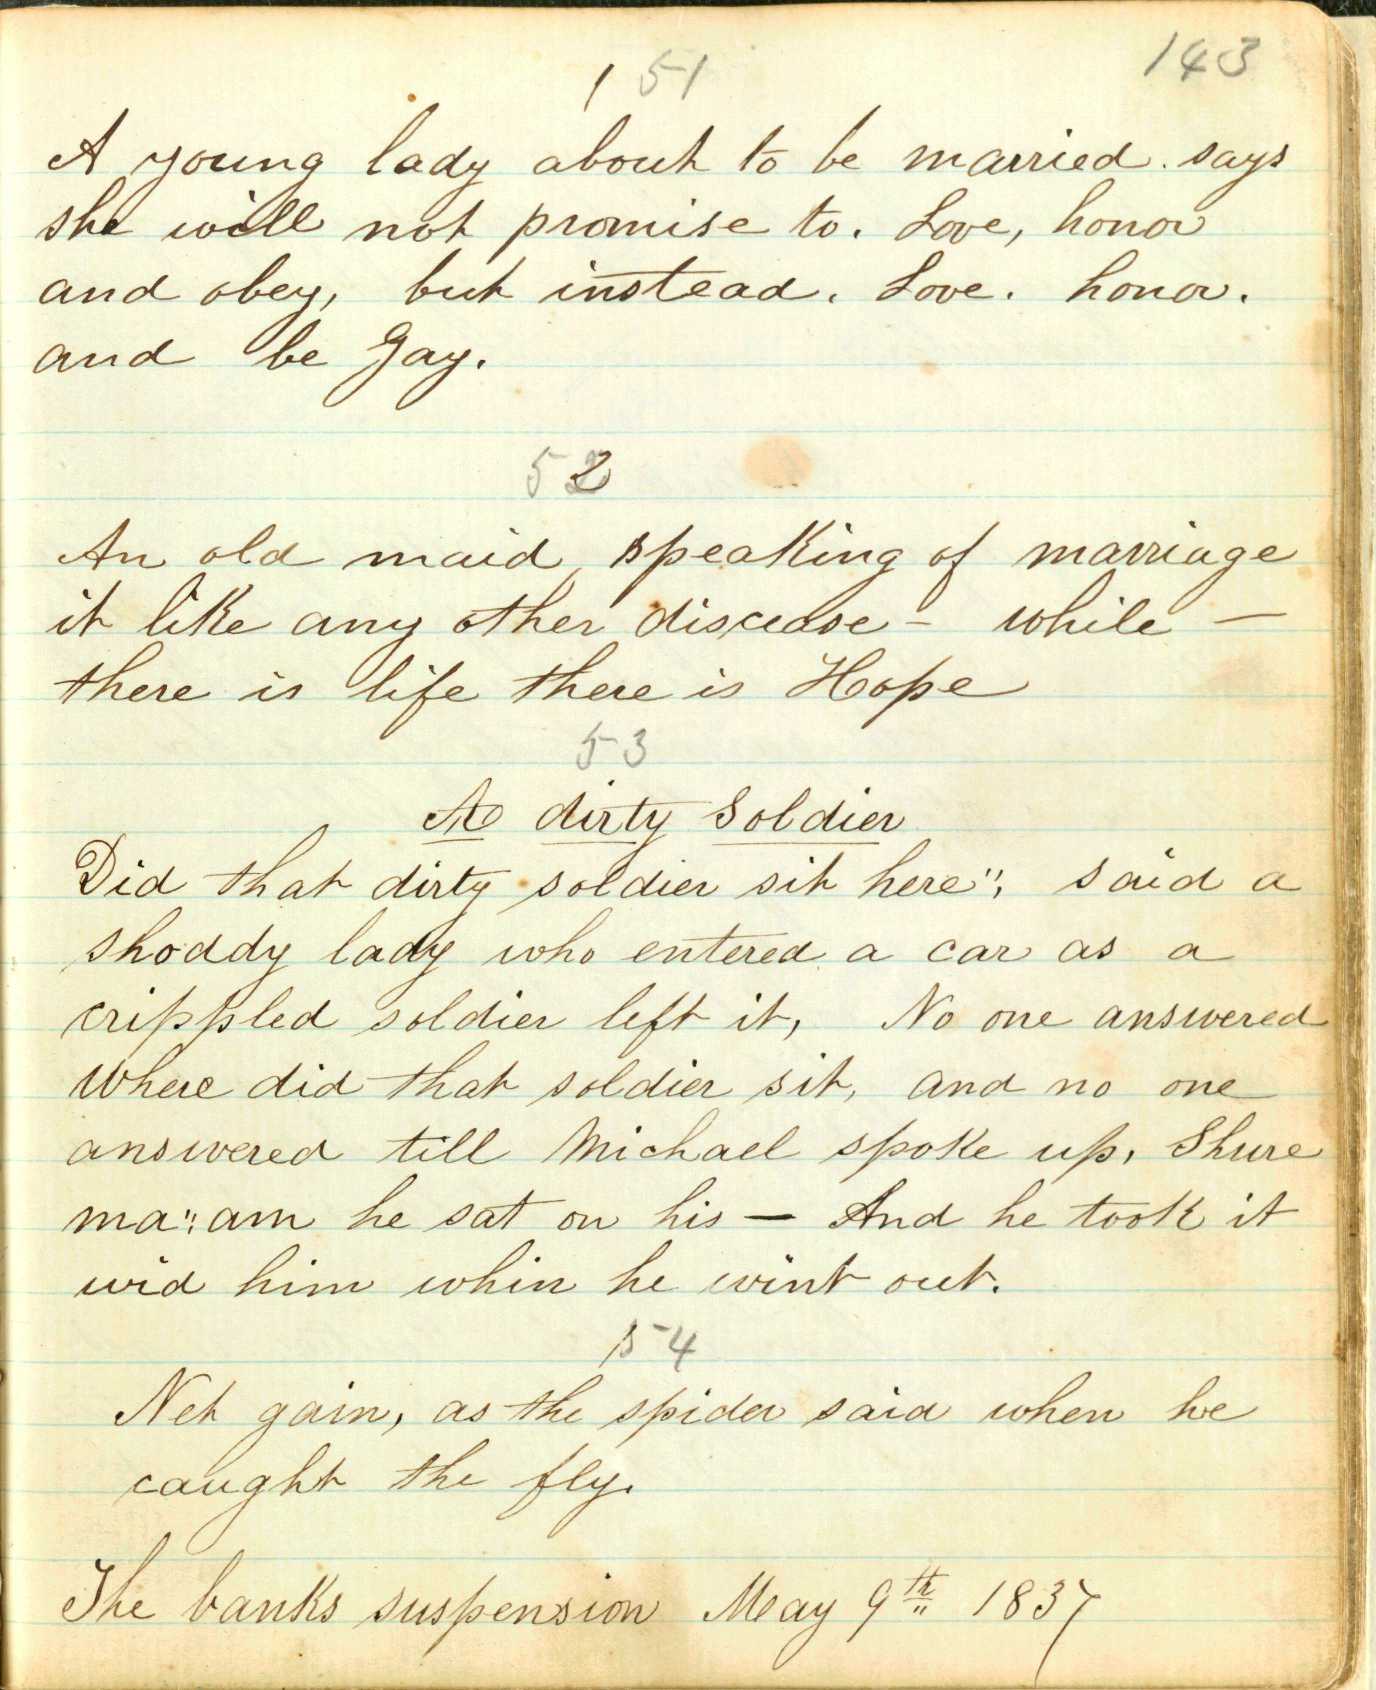 143
1 51
A young lady about to be married. says
she will not promise to. Love, honor
and obey, but instead. Love. honor.
and be Gay.
52
An old maid, speaking of marriage
it like any other discease - while —
there is life there is Hope
53
A dirty Soldier
Did that dirty soldier sit here", said a
shoddy lady who entered a car as a
crippled soldier left it, No one answered
Where did that soldier sit, and no one
answered till Michael spoke up, Shure
ma"am he sat on his — And he took it
wid him whin he wint out.
54
Net gain, as the spider said when he
caught the fly.
The banks suspension May 9th 1837